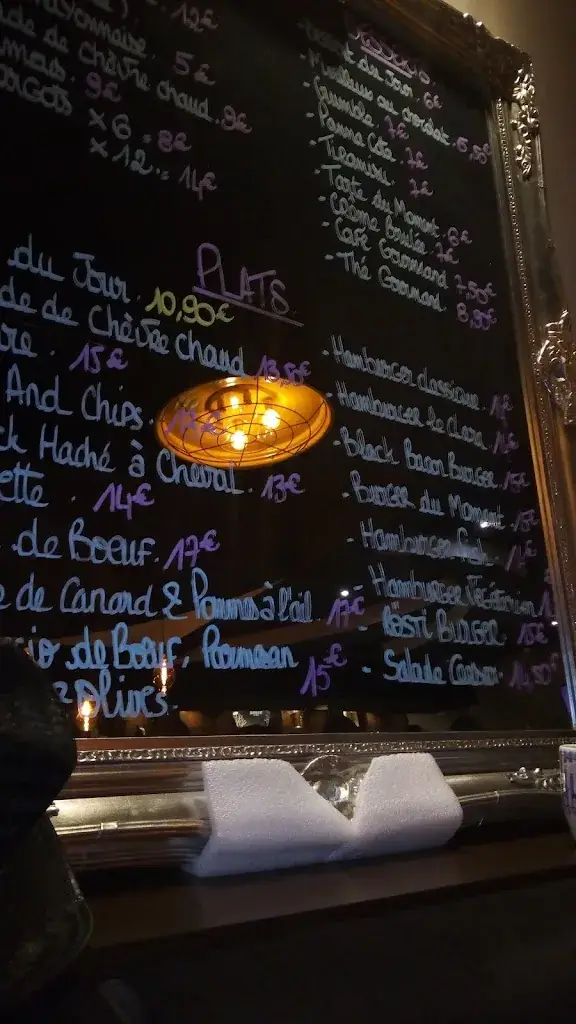 12€
yonnaise. 5€
de de chèvre chaud. 9€
9€
ARGOTS x 6 = 8€
x 12 = 14€
DESSERTS
du Jour. 6€
- Moelleux au chocolat. 5,50€
- Crumble. 7€
- Panna Cota. 7€
- Tiramisu. 7€
- Tarte du Moment. 6€
- Crème Brulée. 7€
- Café Gourmand 7,50€
- Thé Gourmand. 8,50€
PLATS.
du Jour. 10,90€
de de Chèvre chaud 13,50€
re. 15€
And Chips.
ck Haché à Cheval. 13€
ette. 14€
de Boeuf. 17€
de Canard & Pomme à l'ail. 17€
cio de Boeuf, Parmesan
Olives. 15€
- Hamburger classique.
- Hamburger le
- Black Bacon Burger. 15€
- Burger du Moment. 15€
- Hamburger
- Hamburger Végétarien
- Rösti Burger. 15€
- Salade Caesar.